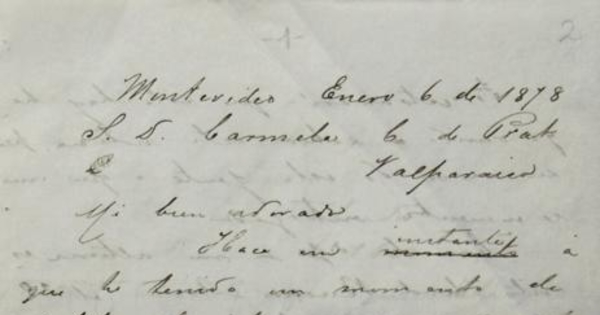 -1-
2
Montevideo Enero 6 de 1878
S. D. Carmela C de Prat
Valparaiso
Mi bien adorado
Hace un momento instantes á
que he tenido un momento de